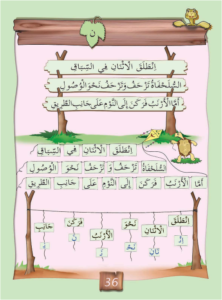 ن
اِنْطَلَقَ الْاِثْنَانِ فِي السِّبَاقِ
السُّلَحْفَاةُ تَزْحَفُ وَتَزْحَفُ نَحْوَ الْوُصُولِ
أَمَّا الْأَرْنَبُ فَرَكَنَ إِلَى النَّوْمِ عَلَى جَانِبِ الطَّرِيقِ
اِنْطَلَقَ الْاِثْنَانِ فِي السِّبَاقِ
السُّلَحْفَاةُ تَزْحَفُ وَ تَزْحَفُ نَحْوَ الْوُصُولِ
أَمَّا الْأَرْنَبُ فَرَكَنَ إِلَى النَّوْمِ عَلَى جَانِبِ الطَّرِيقِ
اِنْطَلَقَ الْاِثْنَانِ نَحْوَ الْأَرْنَبُ فَرَكَنَ جَانِبِ
36